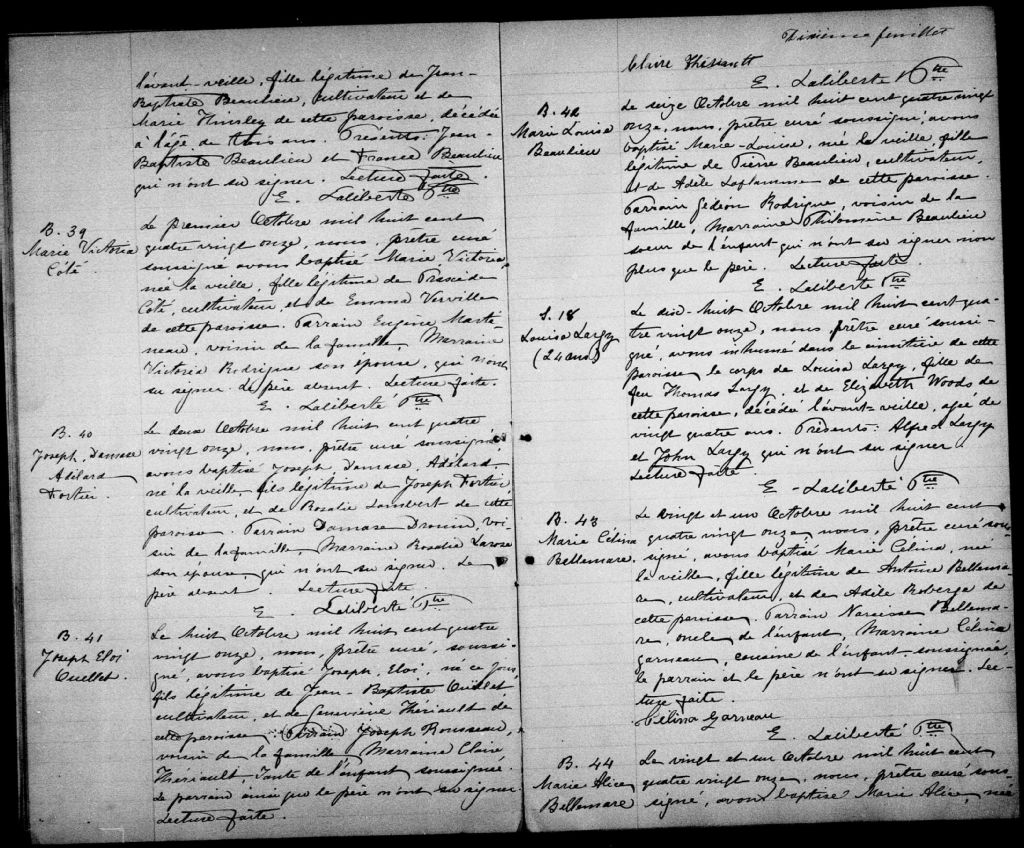 l'avant-veille, fille légitime de Jean-
Baptiste Beaulieu, cultivateur et de
Marie de cette paroisse, décédée
à l'âge de trois ans. Présents: Jean-
Baptiste Beaulieu et France Beaulieu
qui n'ont su signer. Lecture faite.
E. Laliberté Ptre
B. 39
Marie Victoria
Côté.
Le premier Octobre mil huit cent
quatre vingt onze, nous, prêtre curé
soussigné avons baptisé Marie Victoria,
née la veille, fille légitime de
Côté, cultivateur, et de Emma Verville
de cette paroisse. Parrain Eugène Marti-
neau, voisin de la famille, Marraine
Victoria Rodrigue son épouse, qui n'ont
su signer. Le père absent. Lecture faite.
E. Laliberté Ptre
B. 40
Joseph Damase
Adélard
Fortier
Le deux Octobre mil huit cent quatre
vingt onze, nous, prêtre curé soussigné
avons baptisé Joseph, Damase, Adélard,
né la veille, fils légitime de Joseph Fortier,
cultivateur, et de Rosalie Lambert de cette
paroisse. Parrain Damase Drouin, voi-
sin de la famille, Marraine Rosalie Larose
son épouse, qui n'ont su signer. Le
père absent. Lecture faite
E. Laliberté Ptre
B. 41
Joseph Eloi
Ouellet.
Le huit Octobre mil huit cent quatre
vingt onze, nous, prêtre curé, soussi-
gné, avons baptisé Joseph, Eloi, né ce jour
fils légitime de Jean-Baptiste Ouellet
cultivateur, et de Geneviève Thériault de
cette paroisse. Parrain Joseph Rousseau,
voisin de la famille, Marraine Claire
Thériault, Tante de l'enfant soussignée.
Le parrain ainsi que le père n'ont su signer.
Lecture faite.
Dixième feuillet
Claire
E. Laliberté Ptre
B. 42
Marie Louise
Beaulieu
Le seize Octobre mil huit cent quatre vingt
onze, nous, prêtre curé soussigné, avons
baptisé Marie-Louise, née la veille, fille
légitime de Pierre Beaulieu, cultivateur,
et de Adèle Laflamme de cette paroisse.
Parrain Gédéon Rodrigue, voisin de la
famille, Marraine Philomène Beaulieu
soeur de l'enfant qui n'ont su signer non
plus que le père. Lecture faite.
E. Laliberté Ptre
S. 18
Louisa Largy
(24 ans)
Le dix-huit Octobre mil huit cent qua-
tre vingt onze, nous, prêtre curé soussi-
gné, avons inhumé dans le cimetière de cette
paroisse le corps de Louisa Largy, fille de
feu Thomas Largy, et de Elizabeth Woods de
cette paroisse, décédé l'avant-veille, agée de
vingt quatre ans. Présents: Alfred Largy
et John Largy qui n'ont su signer.
Lecture faite.
E. Laliberté Ptre
B. 43
Marie Célina
Bellemare.
Le vingt et un Octobre mil huit cent
quatre vingt onze, nous, prêtre curé sous-
signé, avons baptisé Marie Célina, née
la veille, fille légitime de Antoine Bellema-
re, cultivateur, et de Adèle Roberge de
cette paroisse. Parrain Narcisse Bellema-
re, oncle de l'enfant, Marraine Célina
Garneau, cousine de l'enfant soussignée,
le parrain et le père n'ont su signer. Lec-
ture faite.
Célina Garneau
E. Laliberté Ptre
B. 44
Marie Alice
Bellemare
Le vingt et un Octobre mil huit cent
quatre vingt onze, nous, prêtre curé sous-
signé, avons baptisé Marie Alice, née